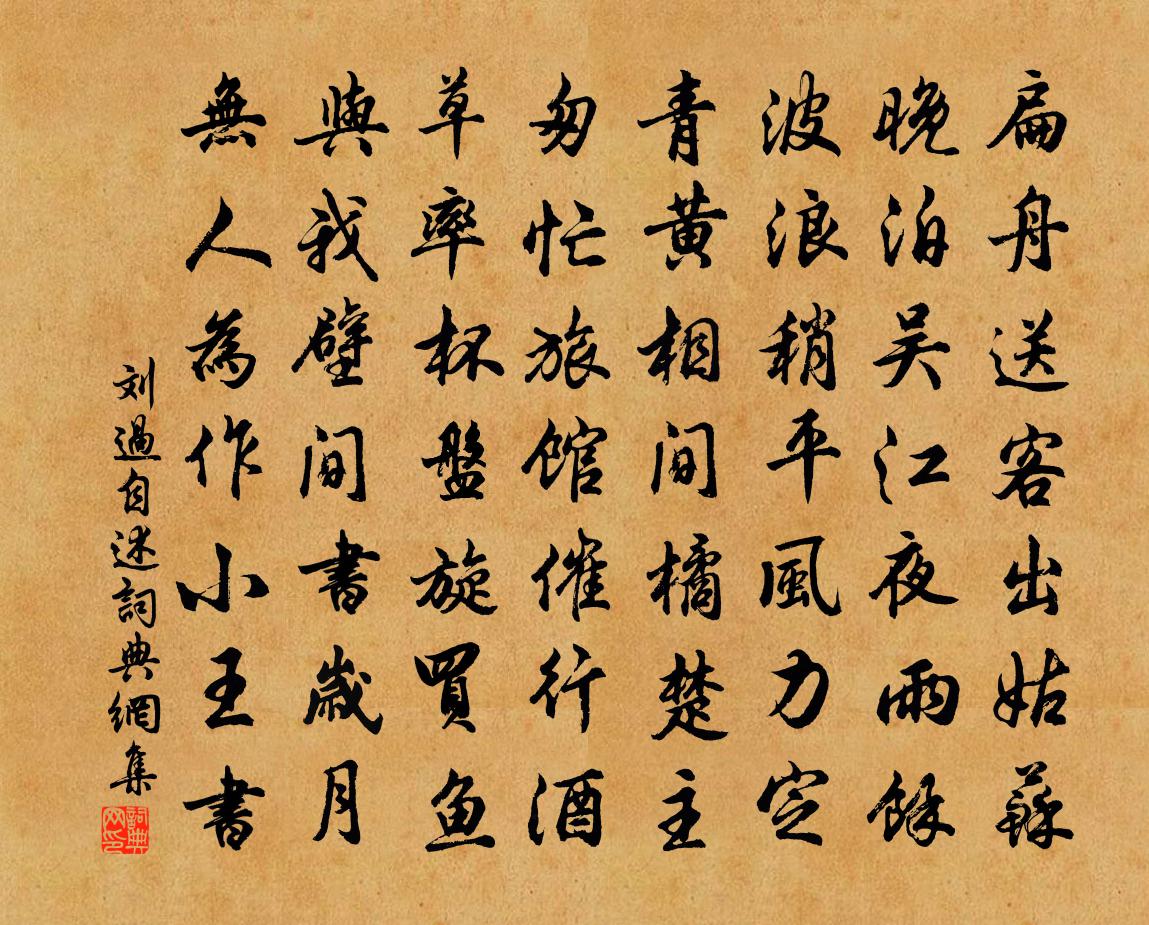 扁舟送客出姑蘇
晚泊吴江夜雨餘
波浪稍平風力定
青黄相间橘楚主
匆忙旅馆催行酒
草率杯盤旋買魚
與我壁间書歲月
無人為作小王書
刘過自述詞典網集
詞典网印